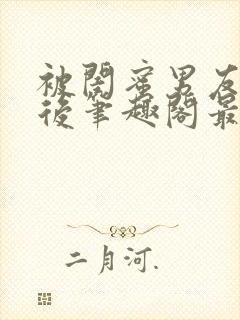 被閣蜜男友
後筆趣閣最
二月河.